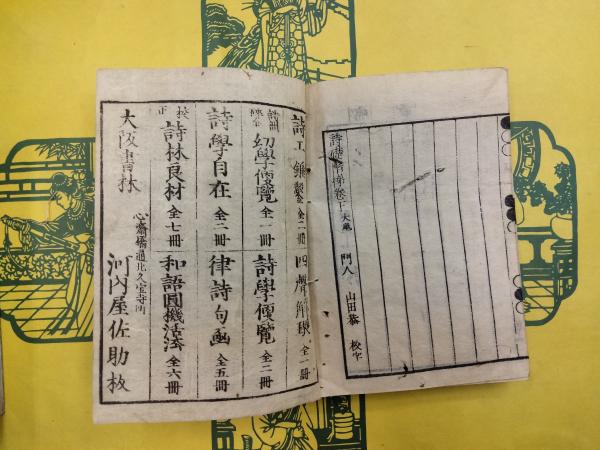 詩礎諺解卷下大尾
門人 山田恭 校字
詩工錐鑿 全二冊
四聲解環 全一冊
詩礎 幼學便覧 全一冊
詩學便覧 全二冊
詩學自在 全二冊
律詩句函 全五冊
校正 詩林良材 全七冊
和語圓機活法 全六冊
大阪書林
心齋橋通北久宝寺町
河内屋佐助板